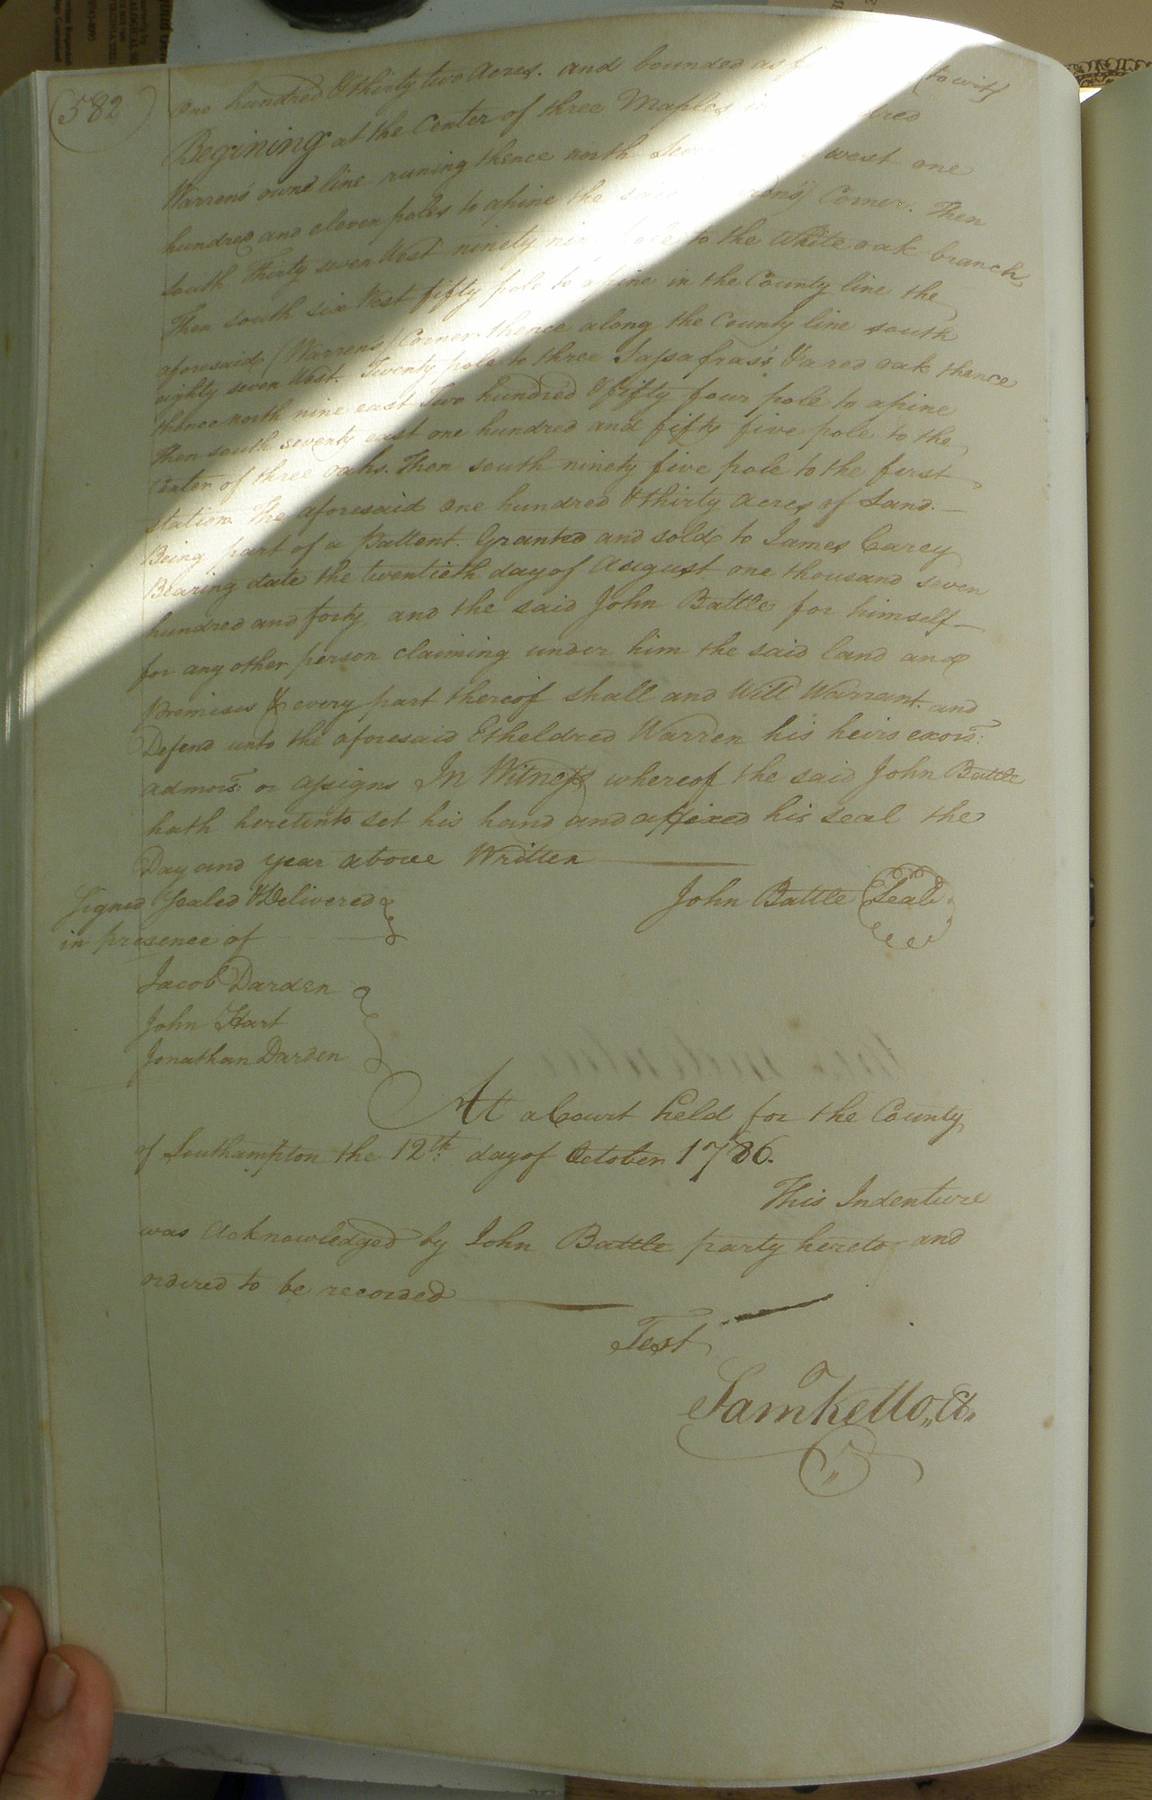 (582)
One hundred & thirty two Acres. and bounded as (to wit)
Begining at the Center of three Maples
Warrens own line runing thence north west one
hundred and eleven poles to a pine the said Corner. Then
South thirty seven West ninety to the White oak branch,
Then south six West fifty pole to a pine in the County line the
aforesaid (Warrens) Corner thence along the County line south
eighty seven West. Twenty pole to three Sassafrass & a red oak thence
thence north nine east Two hundred & fifty four pole to a pine
Then south seventy east one hundred and fifty five pole to the
Center of three oaks. Then south ninety five pole to the first
Station The aforesaid One hundred & thirty Acres of Land.
Being part of a Pattent. Granted and sold to James Carey
Bearing date the twentieth day of August one thousand seven
hundred and forty, and the said John Battle for himself
for any other person claiming under him the said land and
Premises & every part thereof shall and Will Warrant. and
Defend unto the aforesaid Etheldred Warren his heirs exors:
admors: or assigns In Witness whereof the said John Battle
hath hereunto set his hand and affixed his seal the
Day and year above Written
Signed Sealed & Delivered
in presence of
John Battle (Seal)
Jacob Darden
John Hart
Jonathan Darden
At a Court held for the County
of Southampton the 12th. day of October 1786.
This Indenture
was Acknowledged by John Battle party hereto and
ordered to be recorded
Test
Saml Kello, Ct,